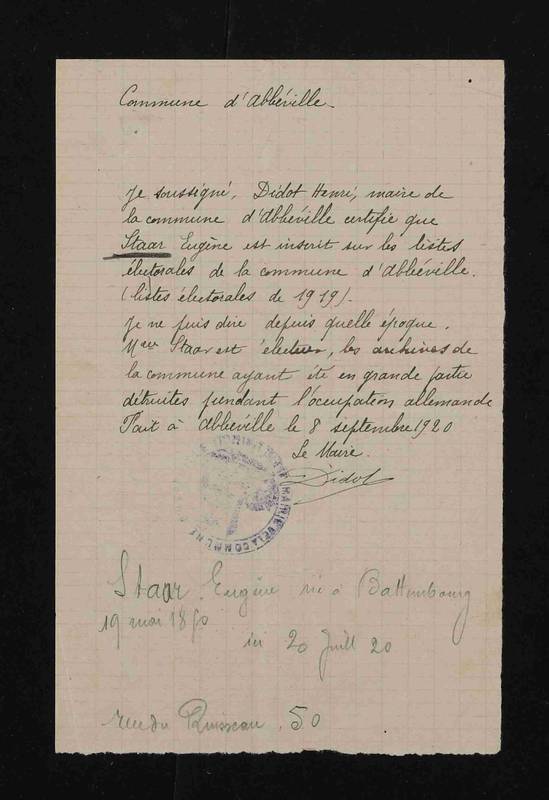 Commune d'Abbéville.
Je soussigné, Didot Henri, maire de
la commune d'Abbéville certifie que
Staar Eugène est inscrit sur les listes
électorales de la commune d'Abbéville.
(listes électorales de 1919).
Je ne puis dire depuis quelle époque.
Staar est électeur, les archives de
la commune ayant été en grande partie
détruites pendant l'occupation allemande
Fait à Abbéville le 8 septembre 1920
Le Maire
Didot
MAIRIE DE LA COMMUNE
Staar Eugène né à Battembourg
19 mai 1890
ici 20 Juill 20
rue du Ruisseau. 50